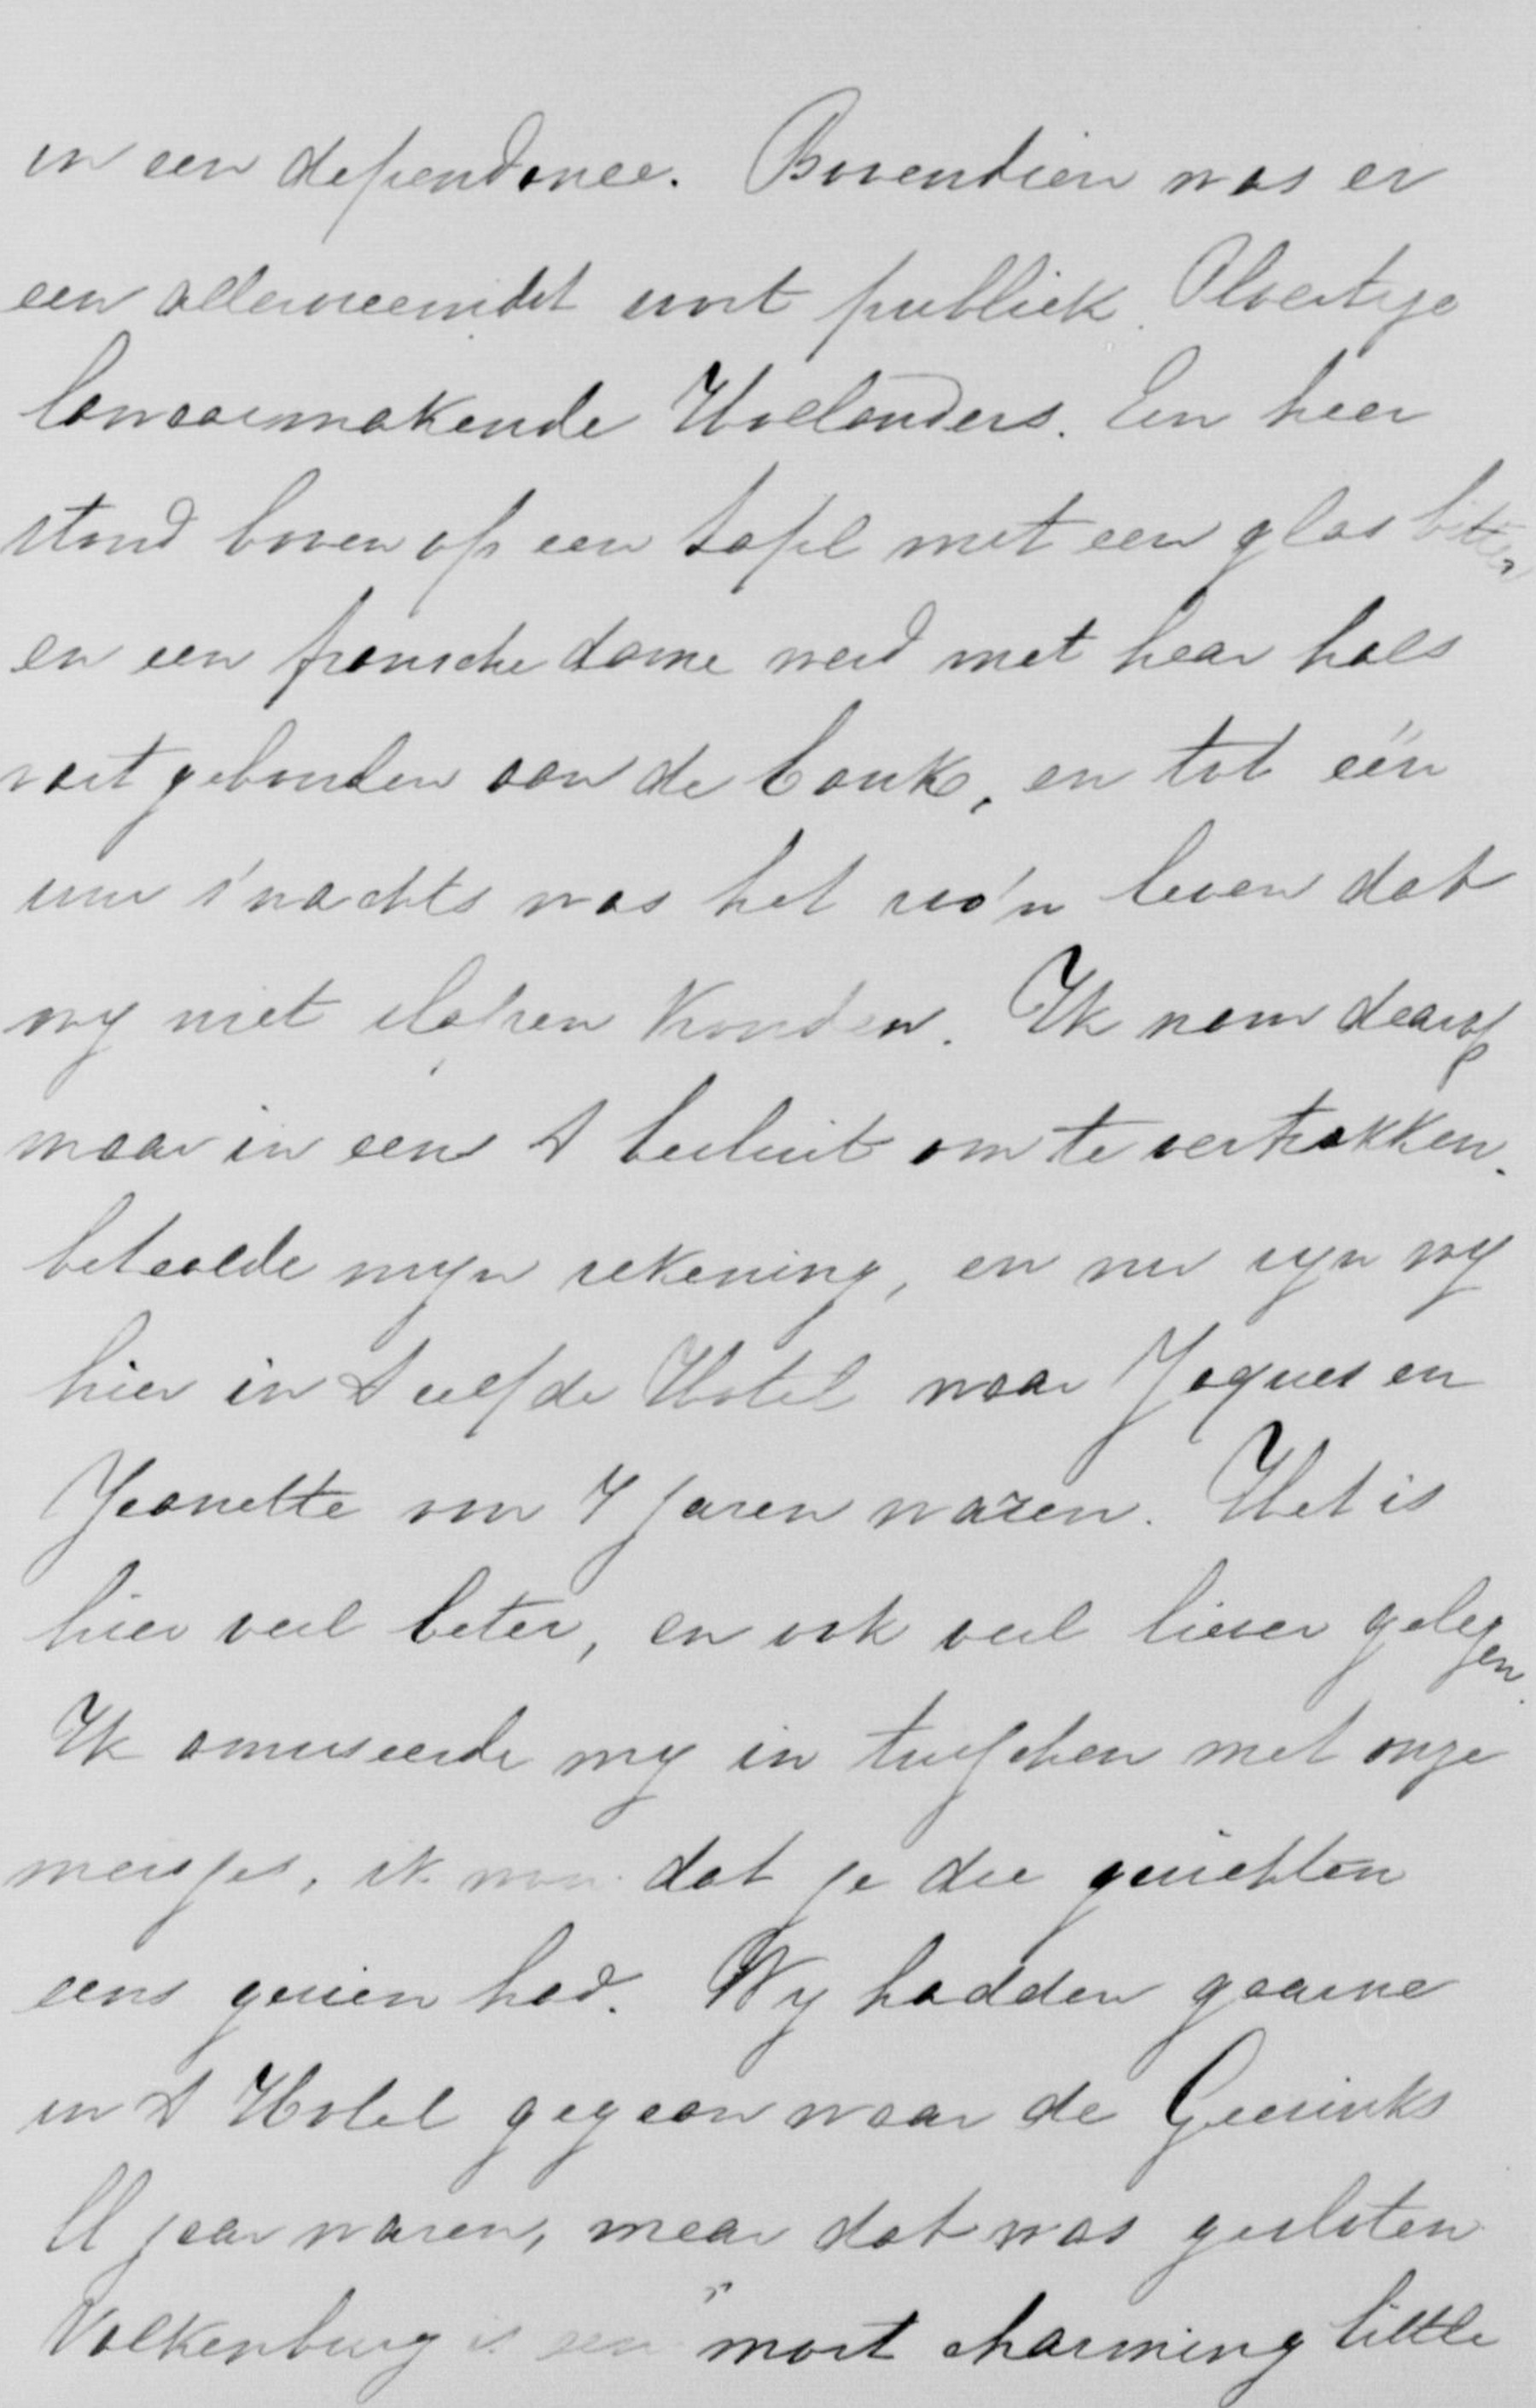 in een dependance. Bovendien was er
een allervreemdst soort publiek. Ploertige
lawaaimakende Hollanders. Een heer
stond boven op een tafel met een glas bitter
en een fransche dame werd met haar hals
vast gebonden aan de bank, en tot één
uur s'nachts was het zoo'n leven dat
wy niet slapen konden. Ik nam daarop
maar in eens 't besluit om te vertrekken.
betaalde myn rekening, en nu zyn wy
hier in 't zelfde Hotel waar Jaques en
Jeanette voor 7 jaren waren. Het is
hier veel beter, en ook veel liever gelegen.
Ik amuseerde my in tusschen met onze
meisjes, ik wou dat je die gezichten
eens gezien had. Wy hadden gaarne
in 't Hotel gegaan waar de Geesinks
ll jaar waren, maar dat was gesloten
Valkenburg is een "most charming little